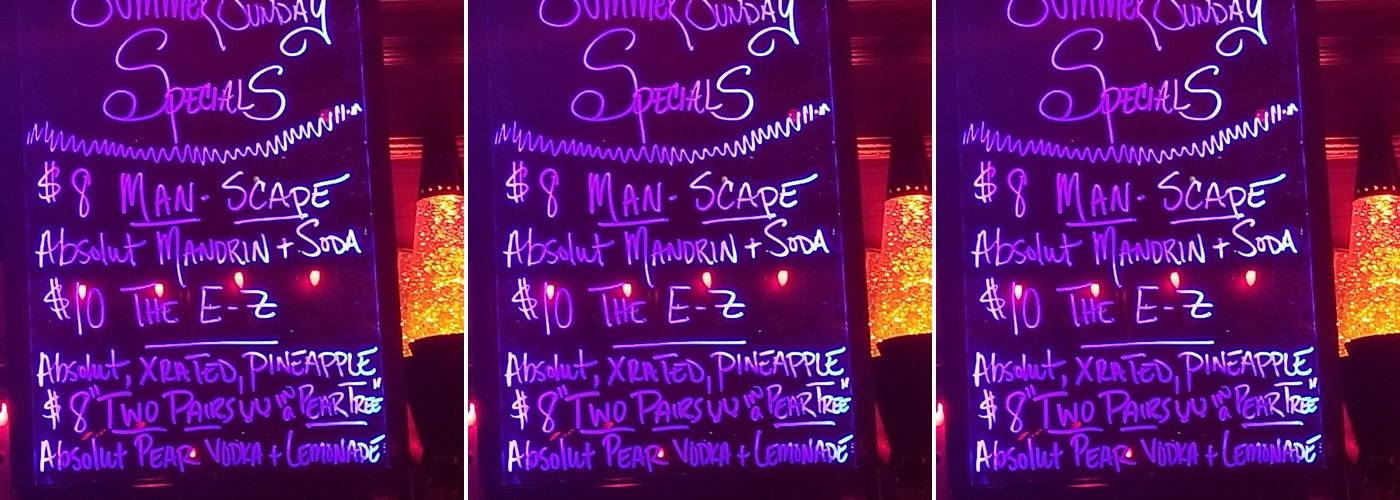 Summer Sunday
Specials
$8 Man-Scape
Absolut Mandrin + Soda
$10 The E-Z
Absolut, XRated, Pineapple
$8 "Two Pairs in a Pear Tree"
Absolut Pear Vodka + Lemonade
Summer Sunday
Specials
$8 Man-Scape
Absolut Mandrin + Soda
$10 The E-Z
Absolut, XRated, Pineapple
$8 "Two Pairs in a Pear Tree"
Absolut Pear Vodka + Lemonade
Summer Sunday
Specials
$8 Man-Scape
Absolut Mandrin + Soda
$10 The E-Z
Absolut, XRated, Pineapple
$8 "Two Pairs in a Pear Tree"
Absolut Pear Vodka + Lemonade